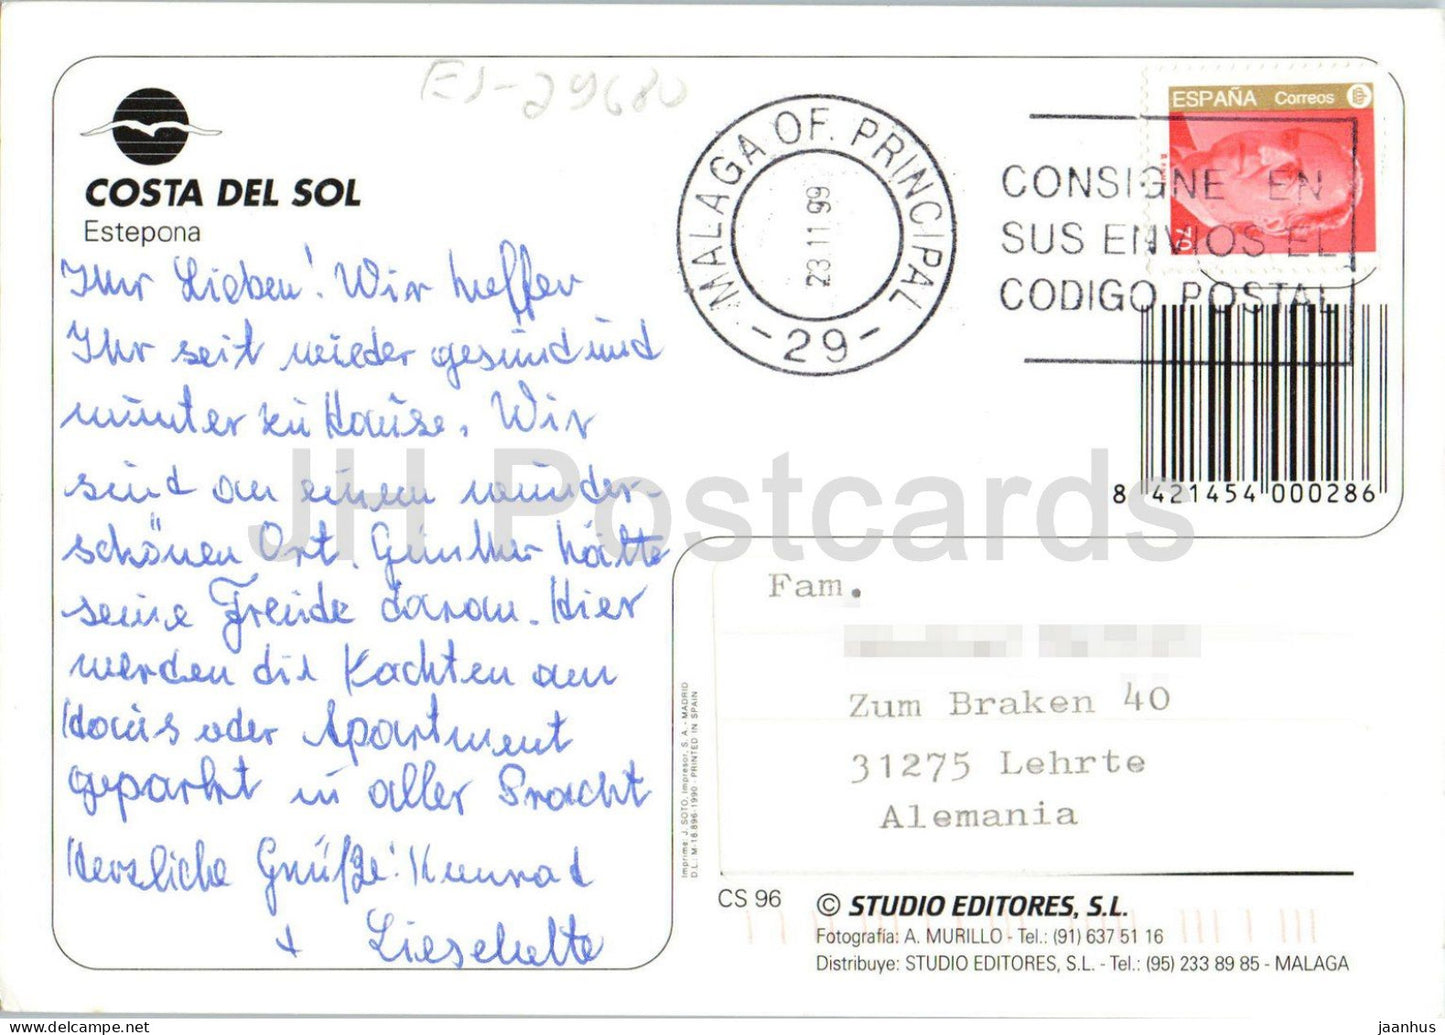 ES-29680
COSTA DEL SOL
Estepona
MALAGA OF. PRINCIPAL
23.11.99
- 29 -
CONSIGNE EN
SUS ENVIOS EL
CODIGO POSTAL
ESPAÑA Correos
70
8 421454 000286
Ihr Lieben! Wir hoffen
Ihr seit wieder gesund und
munter zu Hause. Wir
sind an einem wunder-
schönen Ort. Günther hätte
seine Freude daran. Hier
werden die Yachten am
Haus oder Apartment
geparkt in aller Pracht
Herzliche Grüße! Konrad
+ Lieschelte
JH Postcards
Fam.
Zum Braken 40
31275 Lehrte
Alemania
Imprime: J. SOTO, Impresor, S. A. - MADRID
D.L.: M-16.896-1990 - PRINTED IN SPAIN
CS 96
© STUDIO EDITORES, S.L.
Fotografía: A. MURILLO - Tel.: (91) 637 51 16
Distribuye: STUDIO EDITORES, S.L. - Tel.: (95) 233 89 85 - MALAGA
jaanhus www.delcampe.net